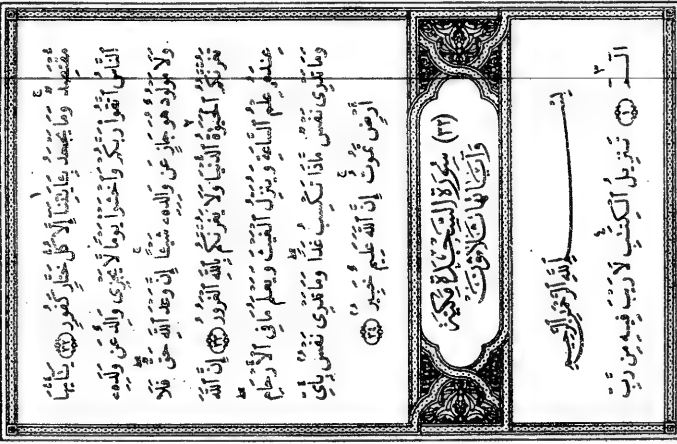 مُّقْتَصِدٌ وَمَا يَجْحَدُ بِـَٔايَٰتِنَآ إِلَّا كُلُّ خَتَّارٍ كَفُورٍ ﴿٣٢﴾ يَٰٓأَيُّهَا
ٱلنَّاسُ ٱتَّقُوا۟ رَبَّكُمْ وَٱخْشَوْا۟ يَوْمًا لَّا يَجْزِى وَالِدٌ عَن وَلَدِهِۦ
وَلَا مَوْلُودٌ هُوَ جَازٍ عَن وَالِدِهِۦ شَيْـًٔا إِنَّ وَعْدَ ٱللَّهِ حَقٌّ فَلَا
تَغُرَّنَّكُمُ ٱلْحَيَوٰةُ ٱلدُّنْيَا وَلَا يَغُرَّنَّكُم بِٱللَّهِ ٱلْغَرُورُ ﴿٣٣﴾ إِنَّ ٱللَّهَ
عِندَهُۥ عِلْمُ ٱلسَّاعَةِ وَيُنَزِّلُ ٱلْغَيْثَ وَيَعْلَمُ مَا فِى ٱلْأَرْحَامِ
وَمَا تَدْرِى نَفْسٌ مَّاذَا تَكْسِبُ غَدًا وَمَا تَدْرِى نَفْسٌۢ بِأَىِّ
أَرْضٍ تَمُوتُ إِنَّ ٱللَّهَ عَلِيمٌ خَبِيرٌۢ ﴿٣٤﴾
(٣٢) سُورَةُ السَّجْدَةِ مَكِّيَّة
وَآيَاتُهَا ثَلَاثُونَ
بِسْمِ ٱللَّهِ ٱلرَّحْمَٰنِ ٱلرَّحِيمِ
الٓمٓ ﴿١﴾ تَنزِيلُ ٱلْكِتَٰبِ لَا رَيْبَ فِيهِ مِن رَّبِّ